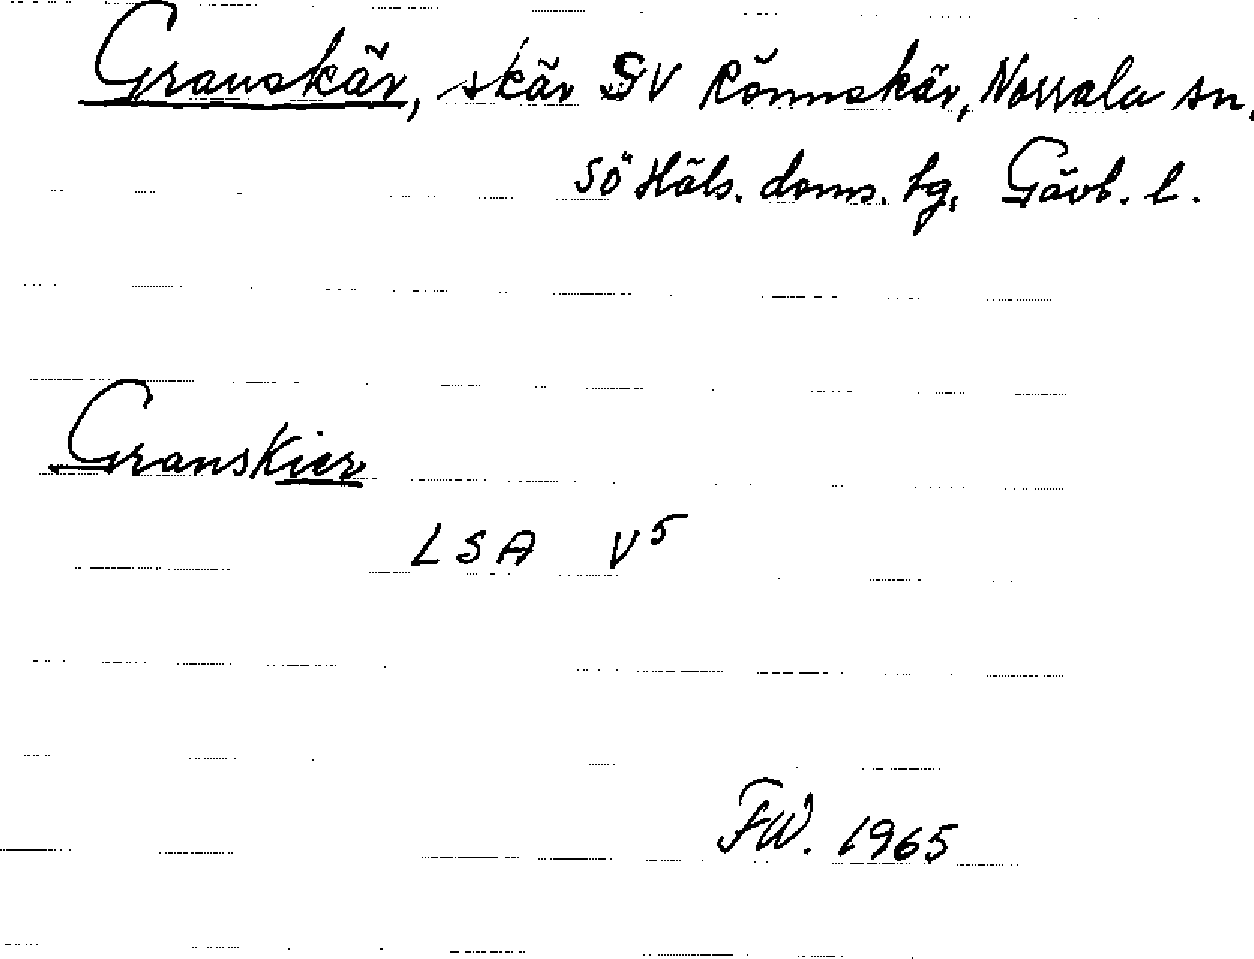 Granskär, skär SV Rönnskär, Norrala sn.
SÖ Häls. doms. tg, Gävl. l.
Granskier
LSA V5
FW. 1965